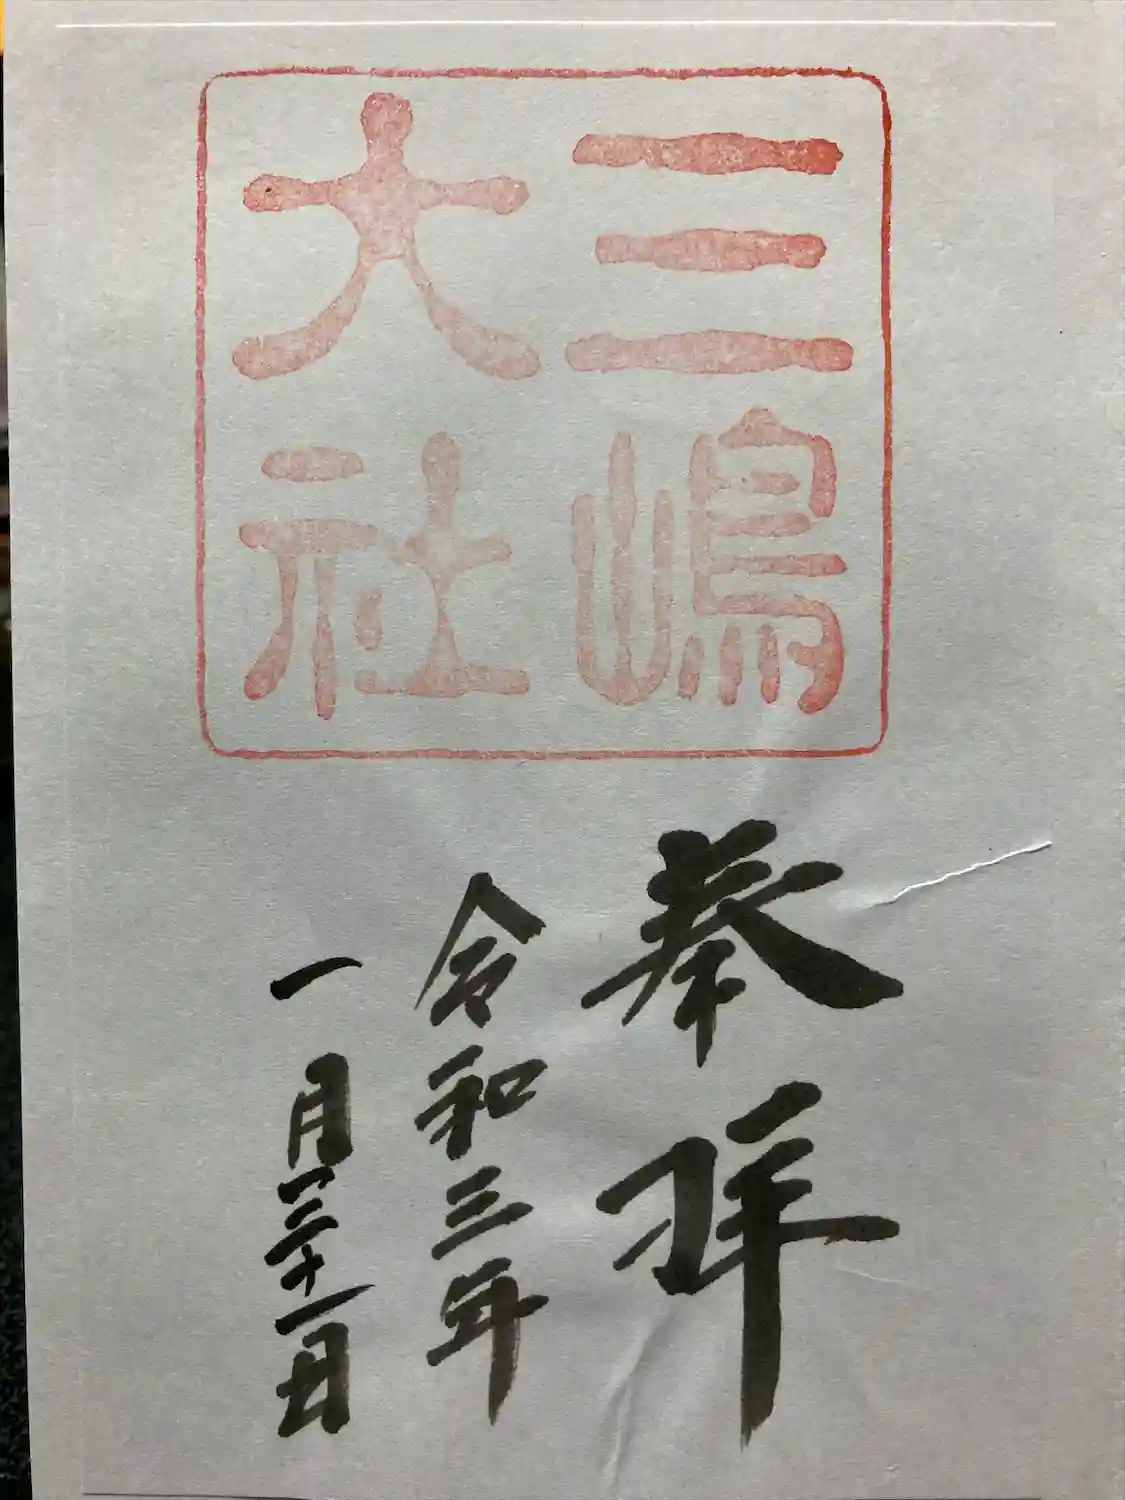 三嶋
大社
奉拝
令和三年
一月三十一日